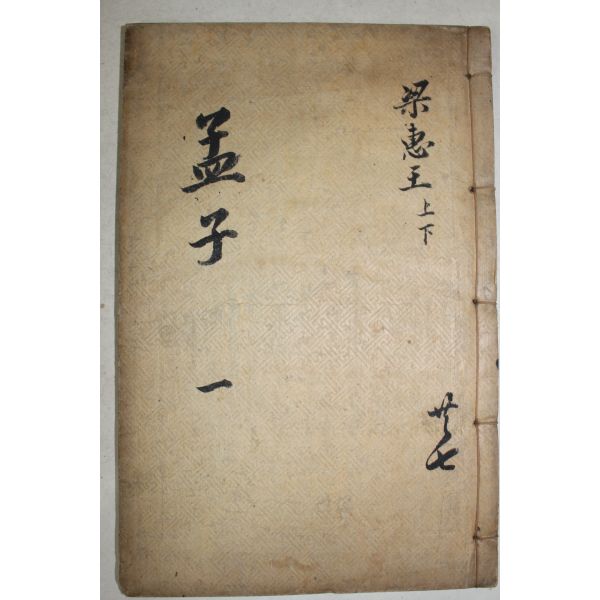 梁惠王 上下
共七
孟子 一